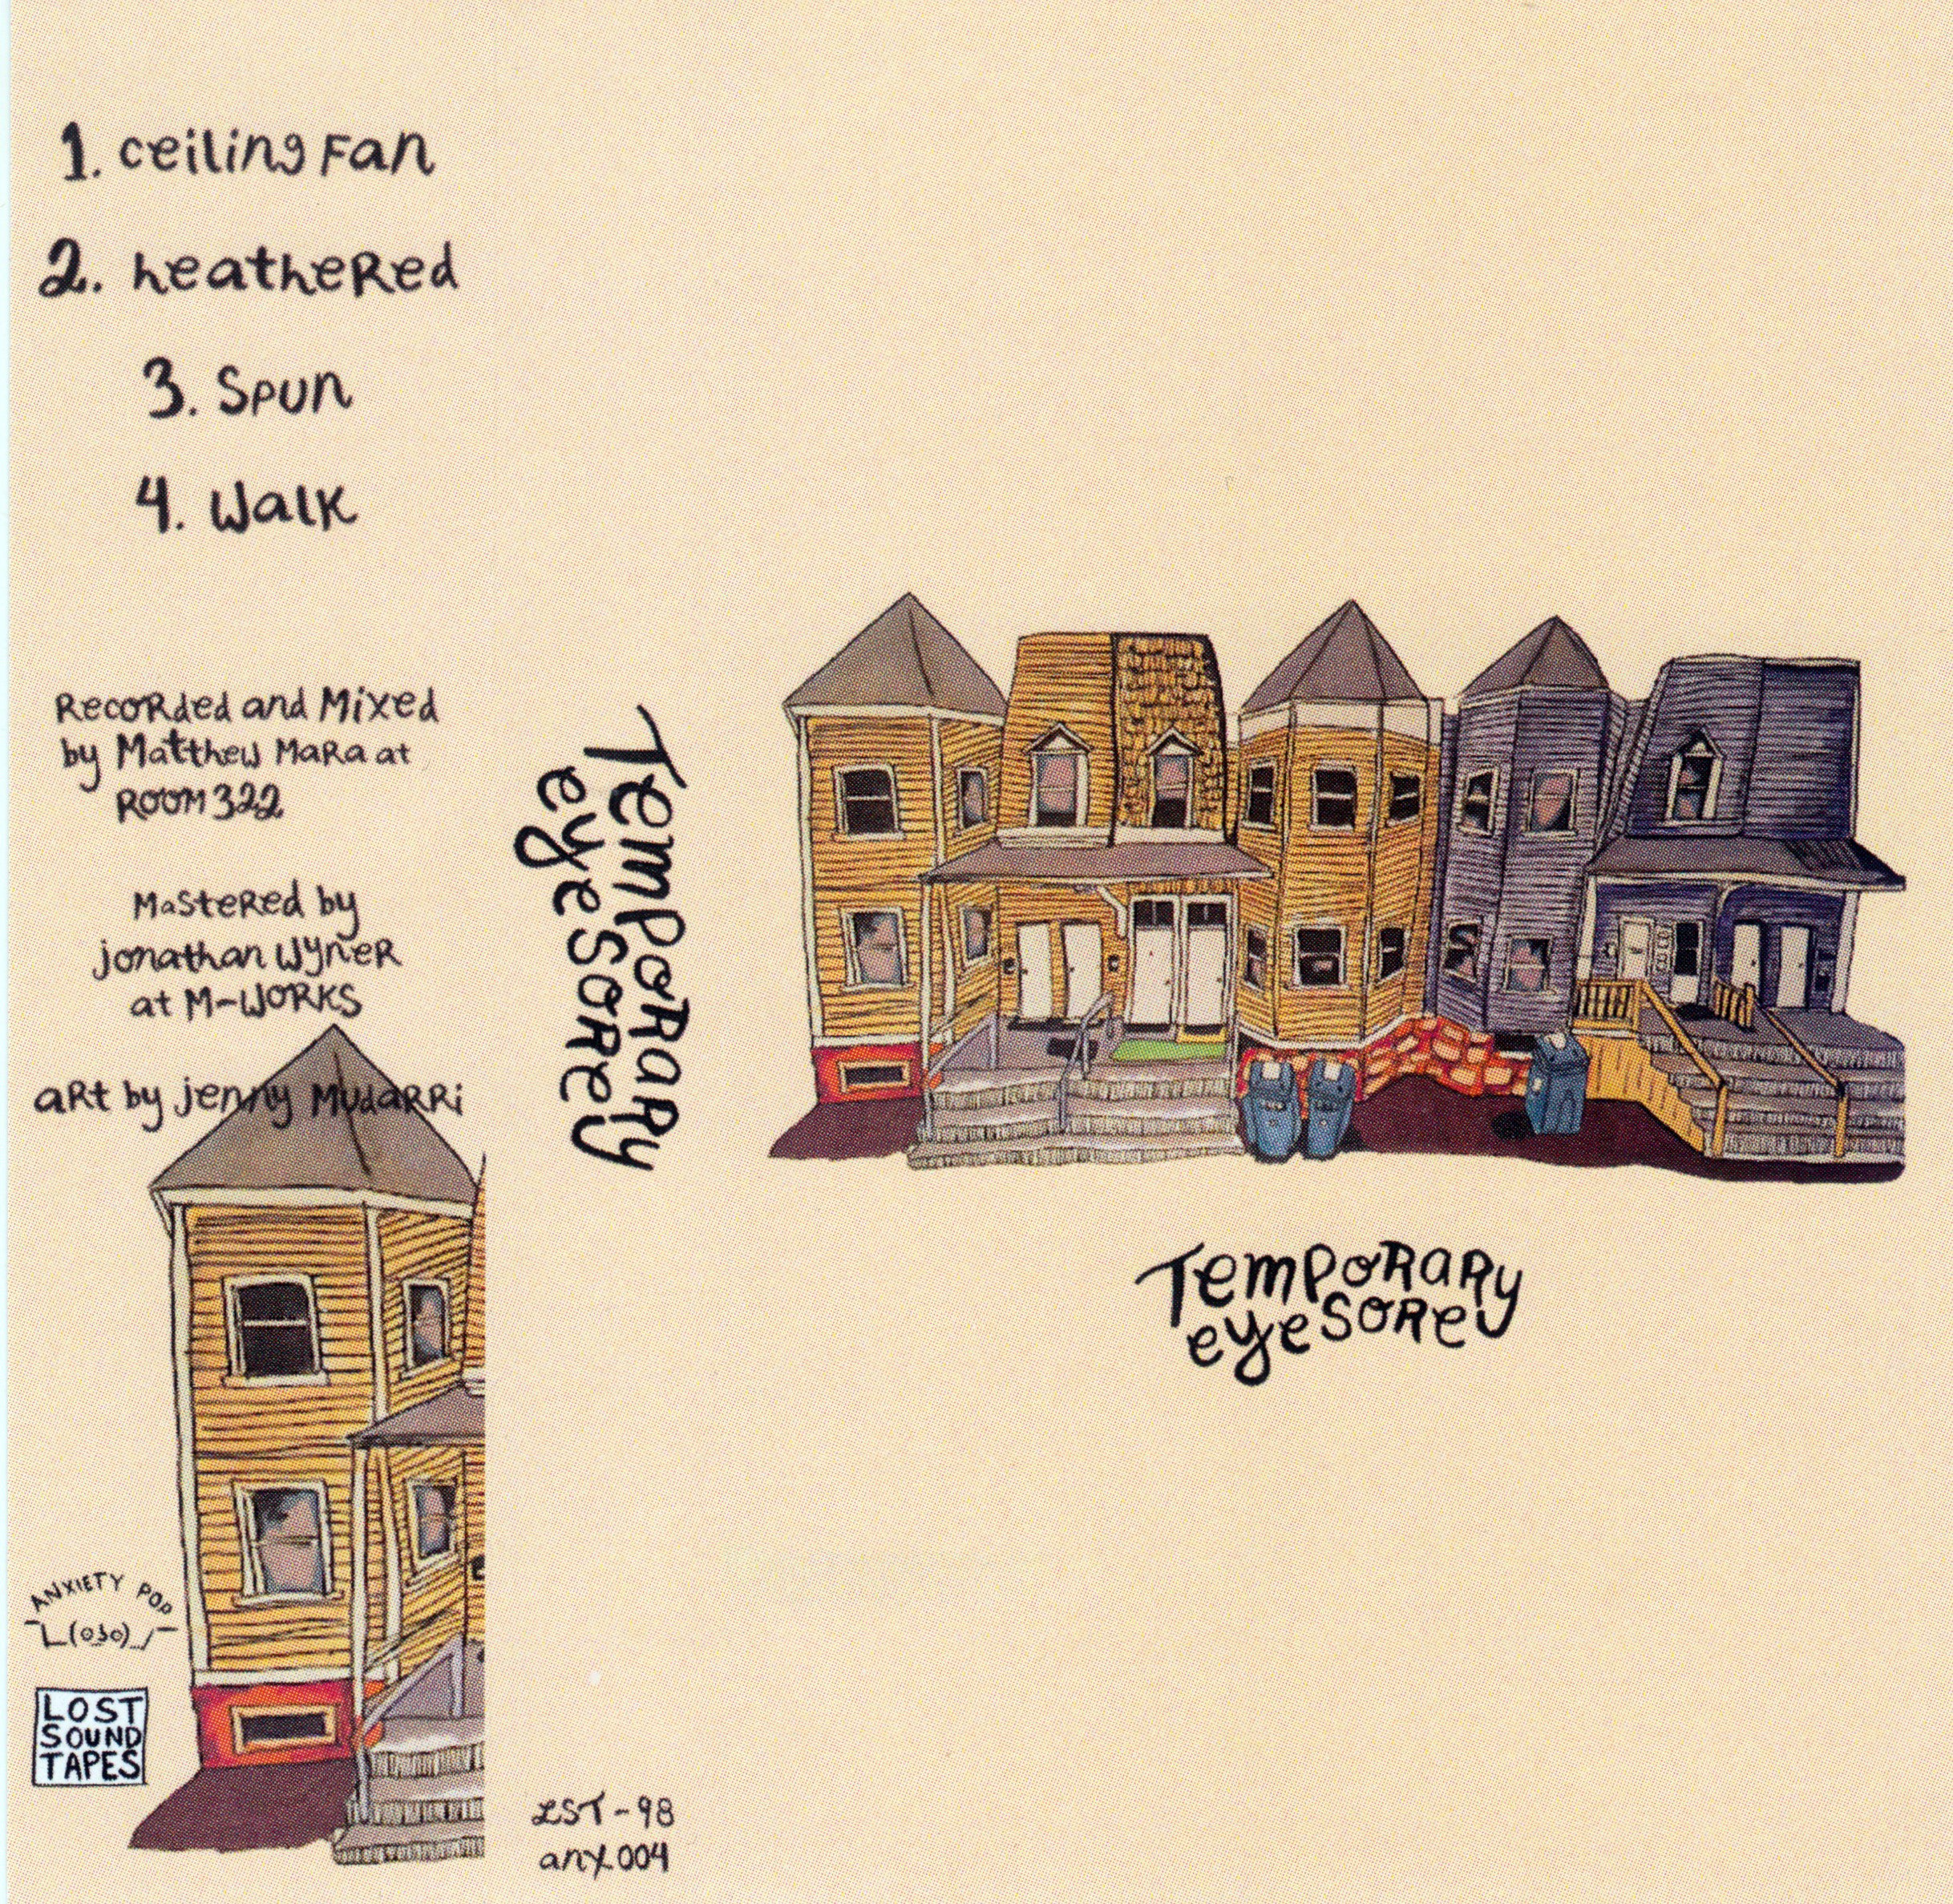 1. ceiling Fan
2. heatheRed
3. Spun
4. Walk
RecoRded and Mixed
by Matthew MaRa at
ROOM 322
MasteRed by
jonathan WyneR
at M-WORKS
aRt by jenny MudaRRi
ANXIETY POP
\_(oso)_/
LOST
SOUND
TAPES
TempoRaRy
eyesoRe
LST-98
anx.004
TempoRaRy
eyesoRe